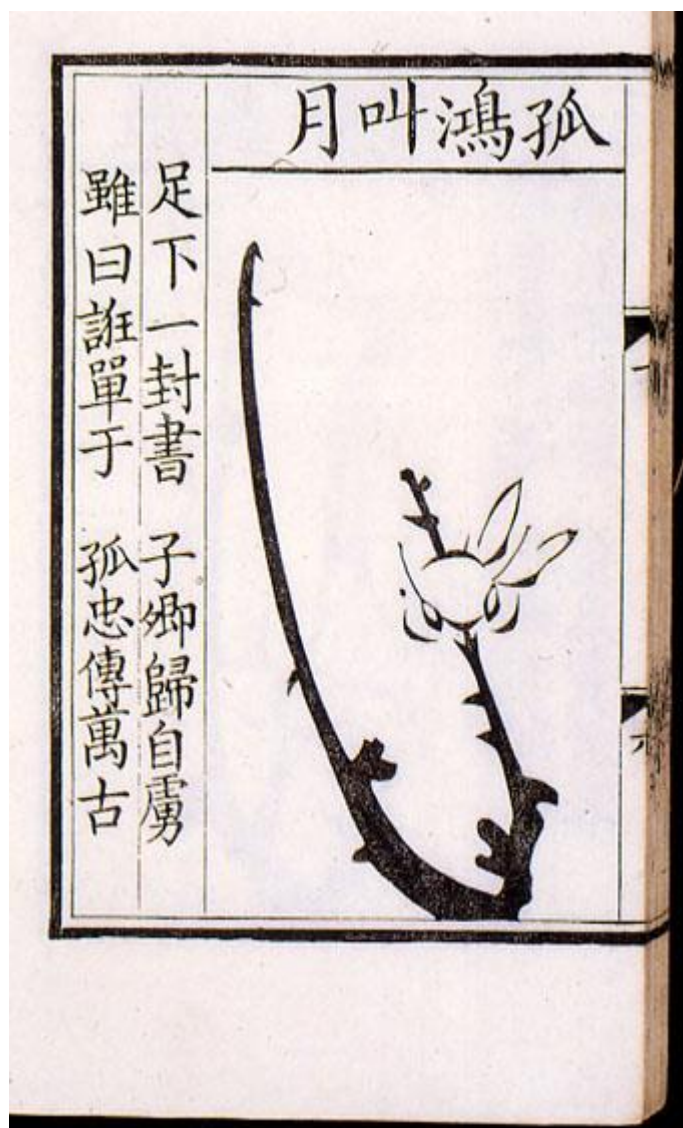 孤鴻叫月
足下一封書 子卿歸自虜
雖曰誑單于 孤忠傳萬古